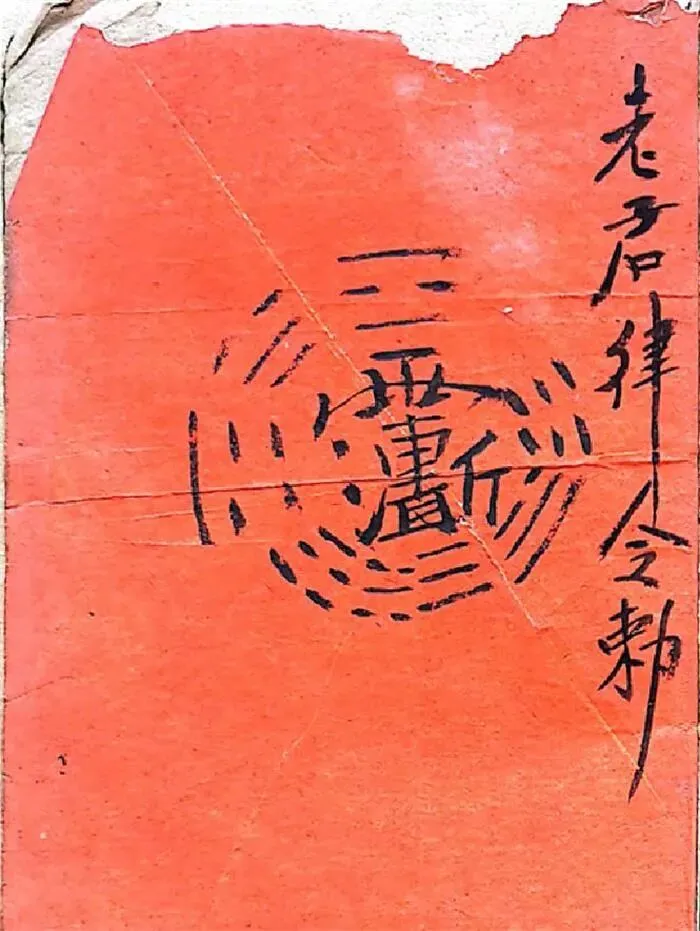 老君律令勅